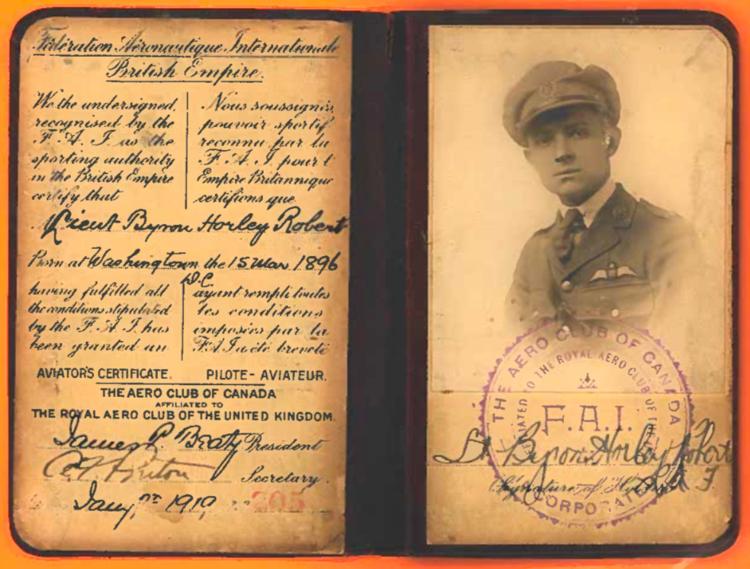 Fédération Aéronautique Internationale
British Empire.
We the undersigned,
recognised by the
F. A. I as the
sporting authority
in the British Empire
certify that
Nous soussignés
pouvoir sportif
reconnu par la
F. A. I pour l'
Empire Britannique
certifions que
Lieut Byron Horley Robert
Born at Washington the 15 Mar 1896
D.C
having fulfilled all
the conditions stipulated
by the F. A. I. has
been granted an
ayant rempli toutes
les conditions
imposées par la
F.A.I a été breveté
AVIATOR'S CERTIFICATE. PILOTE-AVIATEUR.
THE AERO CLUB OF CANADA
AFFILIATED TO
THE ROYAL AERO CLUB OF THE UNITED KINGDOM.
James President
Secretary.
1919 205
THE AERO CLUB OF CANADA
TO THE ROYAL AERO CLUB OF THE
F.A.I.
Lt Byron Horley Robert
Signature of